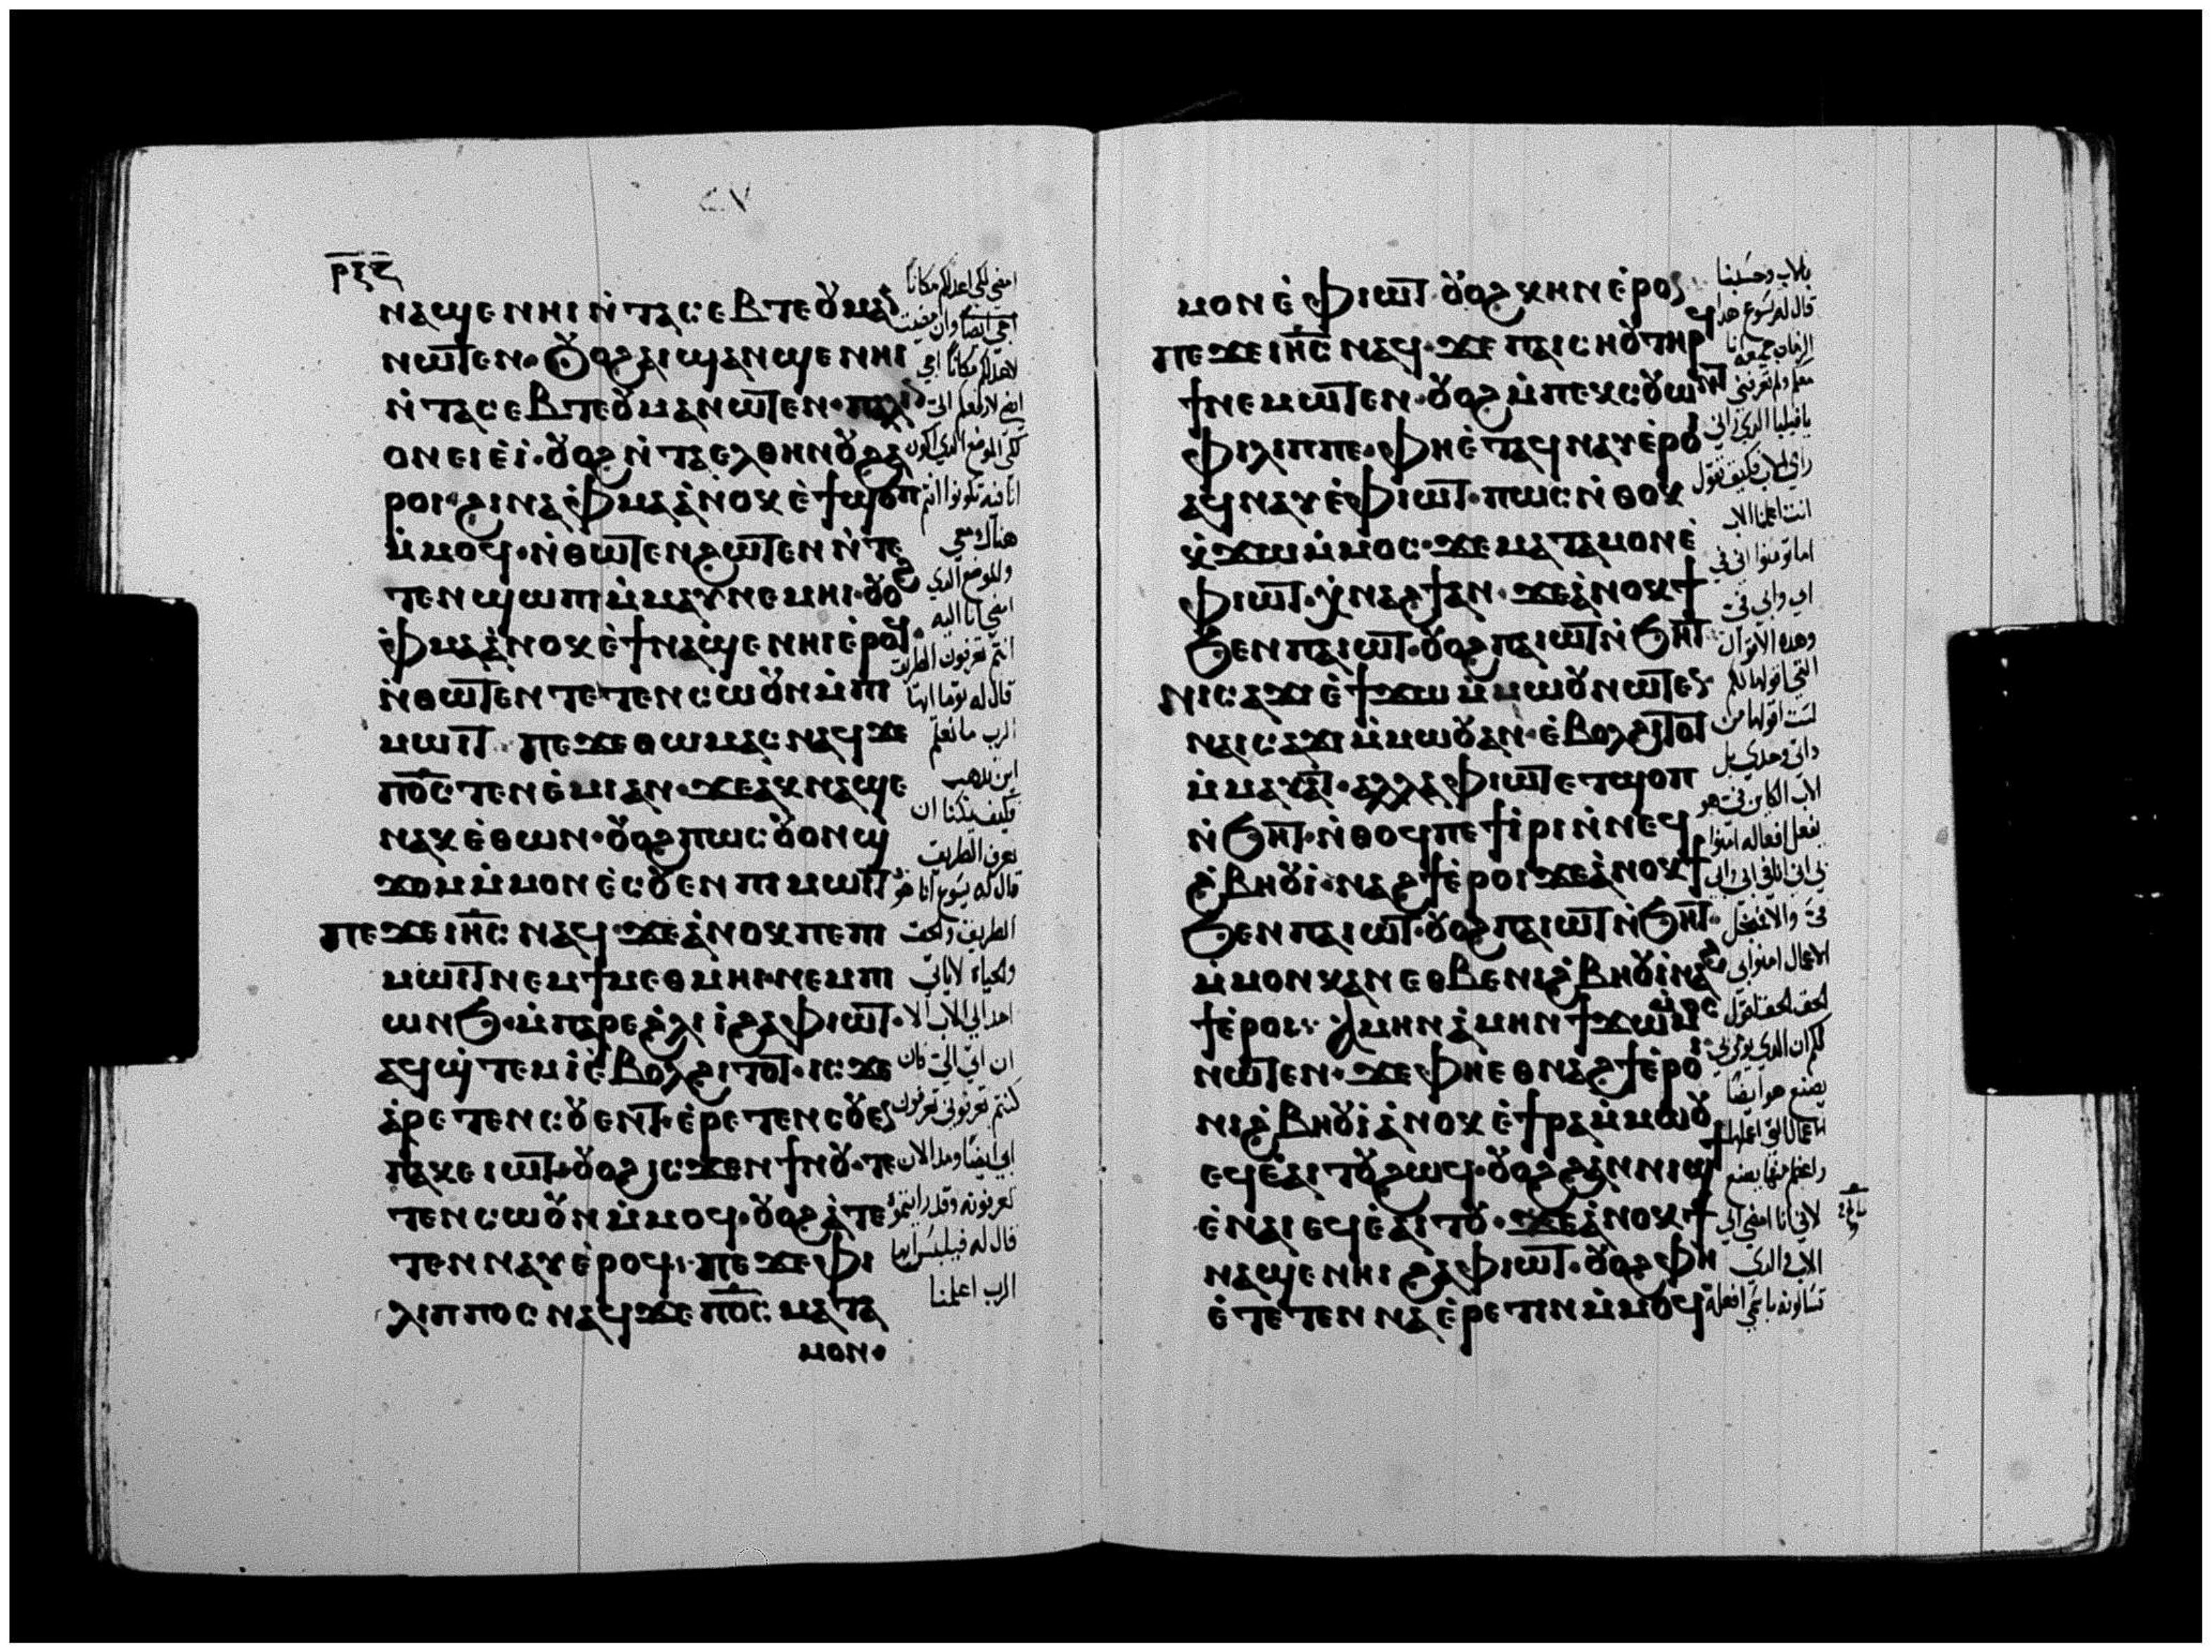 ⲣⲝⲏ
ⲛⲁϣⲉⲛⲏⲓ ⲛ̇ⲧⲁⲥⲉⲃⲧⲉ ⲟⲩⲙⲁ
ⲛⲱⲧⲉⲛ· ⲟⲩⲟϩ ⲁⲓϣⲁⲛϣⲉⲛⲏⲓ
ⲛ̇ⲧⲁⲥⲉⲃⲧⲉ ⲟⲩⲙⲁ ⲛⲱⲧⲉⲛ· ⲡⲁⲗⲓ
ⲟⲛ ⲉⲓⲉ̇ⲓ̇· ⲟⲩⲟϩ ⲛ̇ⲧⲁⲉⲗⲑⲏⲛⲟⲩ ϩⲁ
ⲣⲟⲓ· ϩⲓⲛⲁ ⲫ̇ⲙⲁ ⲁ̇ⲛⲟⲕ ⲉ̇ϯϣⲟⲡ
ⲙ̇ⲙⲟϥ· ⲛ̇ⲑⲱⲧⲉⲛ ϩⲱⲧⲉⲛ ⲛ̇ⲧⲉ
ⲧⲉⲛϣⲱⲡⲓ ⲙ̇ⲙⲁⲩ ⲛⲉⲙⲏⲓ· ⲟⲩⲟϩ
ⲫ̇ⲙⲁ ⲁ̇ⲛⲟⲕ ⲉ̇ϯⲛⲁϣⲉⲛⲏⲓ ⲉ̇ⲣⲟϥ·
ⲛ̇ⲑⲱⲧⲉⲛ ⲧⲉⲧⲉⲛⲥⲱⲟⲩⲛ ⲙ̇ⲡⲓ
ⲙⲱⲓⲧ· ⲡⲉϫⲉ ⲑⲱⲙⲁⲥ ⲛⲁϥ ϫⲉ
ⲡⲟ̅ⲥ̅ ⲧⲉⲛⲉ̇ⲙⲓ ⲁⲛ· ϫⲉ ⲁⲕⲛⲁϣⲉ
ⲛⲁⲕ ⲉ̇ⲑⲱⲛ· ⲟⲩⲟϩ ⲡⲱⲥ ⲟⲩⲟⲛ ϣ
ϫⲟⲙ ⲙ̇ⲙⲟⲛ ⲉ̇ⲥⲟⲩⲉⲛ ⲡⲓⲙⲱⲓⲧ
ⲡⲉϫⲉ ⲓⲏ̅ⲥ̅ ⲛⲁϥ· ϫⲉ ⲁ̇ⲛⲟⲕ ⲡⲉ ⲡⲓ
ⲙⲱⲓⲧ ⲛⲉⲙ ϯⲙⲉⲑⲙⲏⲓ· ⲛⲉⲙ ⲡⲓ
ⲱⲛϧ· ⲙ̇ⲡⲁⲣⲉ ϩ̇ⲗⲓ ⲓ̇ ϩⲁ ⲫⲓⲱⲧ·
ⲁϥϣ̇ⲧⲉⲙⲓ̇ ⲉ̇ⲃⲟⲗϩⲓⲧⲟⲧ· ⲓⲥϫⲉ
ⲁ̇ⲣⲉⲧⲉⲛⲥⲟⲩⲉⲛⲧ· ⲉ̇ⲣⲉⲧⲉⲛⲥⲟⲩⲉⲛ
ⲡⲁⲕⲉⲓⲱⲧ· ⲟⲩⲟϩ ⲓⲥϫⲉⲛ ϯⲛⲟⲩ· ⲧⲉ
ⲧⲉⲛⲥⲱⲟⲩⲛ ⲙ̇ⲙⲟϥ· ⲟⲩⲟϩ ⲁ̇ⲧⲉ
ⲧⲉⲛⲛⲁⲩ ⲉ̇ⲣⲟϥ· ⲡⲉϫⲉ ⲫⲓ
ⲗⲓⲡⲡⲟⲥ ⲛⲁϥ ϫⲉ ⲡⲟ̅ⲥ̅ ⲙⲁⲧⲁ
ⲙⲟⲛ·
امضي لكي اعد لكم مكانا
لاعد لكم مكانا اجي
انا فيه تكونوا انتم
والموضع الدي
امضي انا اليه
انتم تعرفون الطريق
قال له توما ايها
الرب ما نعلم
اين تدهب
فكيف يمكنا ان
نعرف الطريق
قال له يسوع انا هو
الطريق والحق
والحياه لا ياتي
احد الي الاب الا
كنتم تعرفوني تعرفون
تعرفونه وقد رايتموه
قال له فيلبس ايها
الرب اعلمنا
ⲙⲟⲛ ⲉ̇ⲫⲓⲱⲧ· ⲟⲩⲟϩ ⲕⲏⲛ ⲉ̇ⲣⲟⲛ
ⲡⲉϫⲉ ⲓⲏ̅ⲥ̅ ⲛⲁϥ· ϫⲉ ⲡⲁⲓⲥⲏⲟⲩ ⲧⲏⲣϥ
ϯⲛⲉⲙⲱⲧⲉⲛ· ⲟⲩⲟϩ ⲙ̇ⲡⲉⲕⲥⲟⲩⲱⲛⲧ
ⲫⲓⲗⲓⲡⲡⲉ· ⲫⲏⲉ̇ⲧⲁϥⲛⲁⲩ ⲉ̇ⲣⲟⲓ
ⲁϥⲛⲁⲩ ⲉ̇ⲫⲓⲱⲧ· ⲡⲱⲥ ⲛ̇ⲑⲟⲕ
ⲕ̇ϫⲱ ⲙ̇ⲙⲟⲥ· ϫⲉ ⲙⲁⲧⲁⲙⲟⲛ ⲉ̇
ⲫⲓⲱⲧ· ⲭ̇ⲛⲁϩϯ ⲁⲛ· ϫⲉ ⲁ̇ⲛⲟⲕ ϯ
ϧⲉⲛ ⲡⲁⲓⲱⲧ· ⲟⲩⲟϩ ⲡⲁⲓⲱⲧ ⲛ̇ϧⲏⲧ·
ⲛⲓⲥⲁϫⲓ ⲉ̇ϯϫⲱ ⲙ̇ⲙⲱⲟⲩ ⲛⲱⲧⲉⲛ
ⲛⲁⲓⲥⲁϫⲓ ⲙ̇ⲙⲱⲟⲩ ⲁⲛ· ⲉ̇ⲃⲟⲗϩⲓⲧⲟⲧ
ⲙ̇ⲙⲁⲩⲁⲧ· ⲁⲗⲗⲁ ⲫⲓⲱⲧ ⲉⲧϣⲟⲡ
ⲛ̇ϧⲏⲧ· ⲛ̇ⲑⲟϥ ⲡⲉⲧⲓ̇ⲣⲓ ⲛ̇ⲛⲉϥ
ϩ̇ⲃⲏⲟⲩⲓ̇· ⲛⲁϩϯ ⲉ̇ⲣⲟⲓ ϫⲉ ⲁ̇ⲛⲟⲕ ϯ
ϧⲉⲛ ⲡⲁⲓⲱⲧ· ⲟⲩⲟϩ ⲡⲁⲓⲱⲧ ⲛ̇ϧⲏⲧ·
ⲙ̇ⲙⲟⲛ ⲕⲁⲛ ⲉⲑⲃⲉ ⲛⲓϩ̇ⲃⲏⲟⲩⲓ̇ ⲛⲁϩ
ϯ ⲉ̇ⲣⲟⲓ· ⲁ̇ⲙⲏⲛ ⲁ̇ⲙⲏⲛ ϯϫⲱ ⲙ̇ⲙⲟⲥ
ⲛⲱⲧⲉⲛ· ϫⲉ ⲫⲏⲉⲑⲛⲁϩϯ ⲉ̇ⲣⲟⲓ
ⲛⲓϩ̇ⲃⲏⲟⲩⲓ̇ ⲁ̇ⲛⲟⲕ ⲉ̇ϯⲣⲁ ⲙ̇ⲙⲱⲟⲩ
ⲉϥⲉ̇ⲁⲓⲧⲟⲩ ϩⲱϥ· ⲟⲩⲟϩ ϩⲁⲛⲛⲓϣϯ
ⲉ̇ⲛⲁⲓ ⲉϥⲉ̇ⲁⲓⲧⲟⲩ· ϫⲉ ⲁ̇ⲛⲟⲕ ϯ
ⲛⲁϣⲉⲛⲏⲓ ϩⲁ ⲫⲓⲱⲧ· ⲟⲩⲟϩ ⲫⲏ
ⲉ̇ⲧⲉⲧⲉⲛⲛⲁⲉ̇ⲣⲉⲧⲓⲛ ⲙ̇ⲙⲟϥ
بالاب وحسبنا
قال له يسوع هدا
الزمان جميعه انا
معكم ولم تعرفني
يا فيلبا الدي راني
راي الاب فكيف تقول
انت اعلمنا الاب
اما تومنوا اني في
ابي وابي في
وهده الاقوال
التي اقولها لكم
لست اقولها من
داتي وحدي بل
الاب الكاين في هو
يفعل افعاله امنوا
الاعمال امنوا بي
الحق الحق اقول
لكم ان الدي يومن بي
يصنع هو ايضا
واعظم منها يصنع
لاني انا امضي الي
الاب والدي
تسالونه باسمي افعله